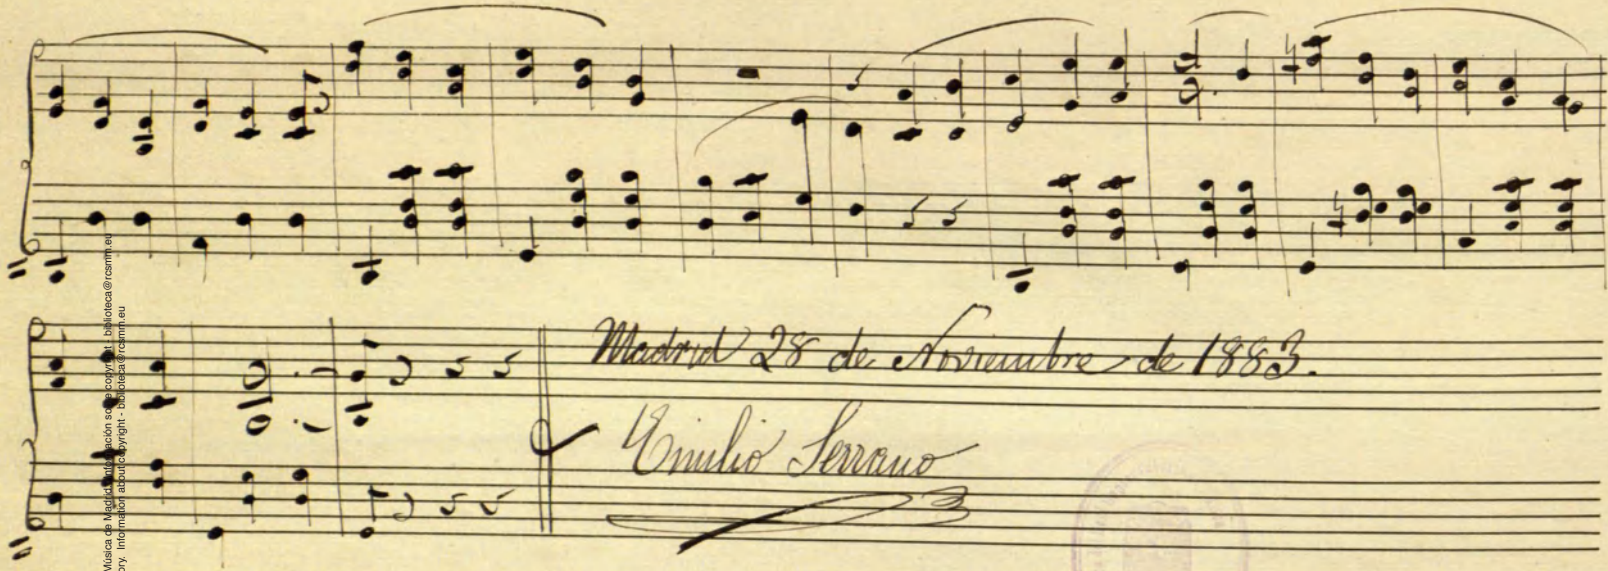 Madrid 28 de Noviembre de 1883.
Emilio Serrano
Música de Madrid. Información sobre copyright - biblioteca@rcsmm.eu
ory. Information about copyright - biblioteca@rcsmm.eu